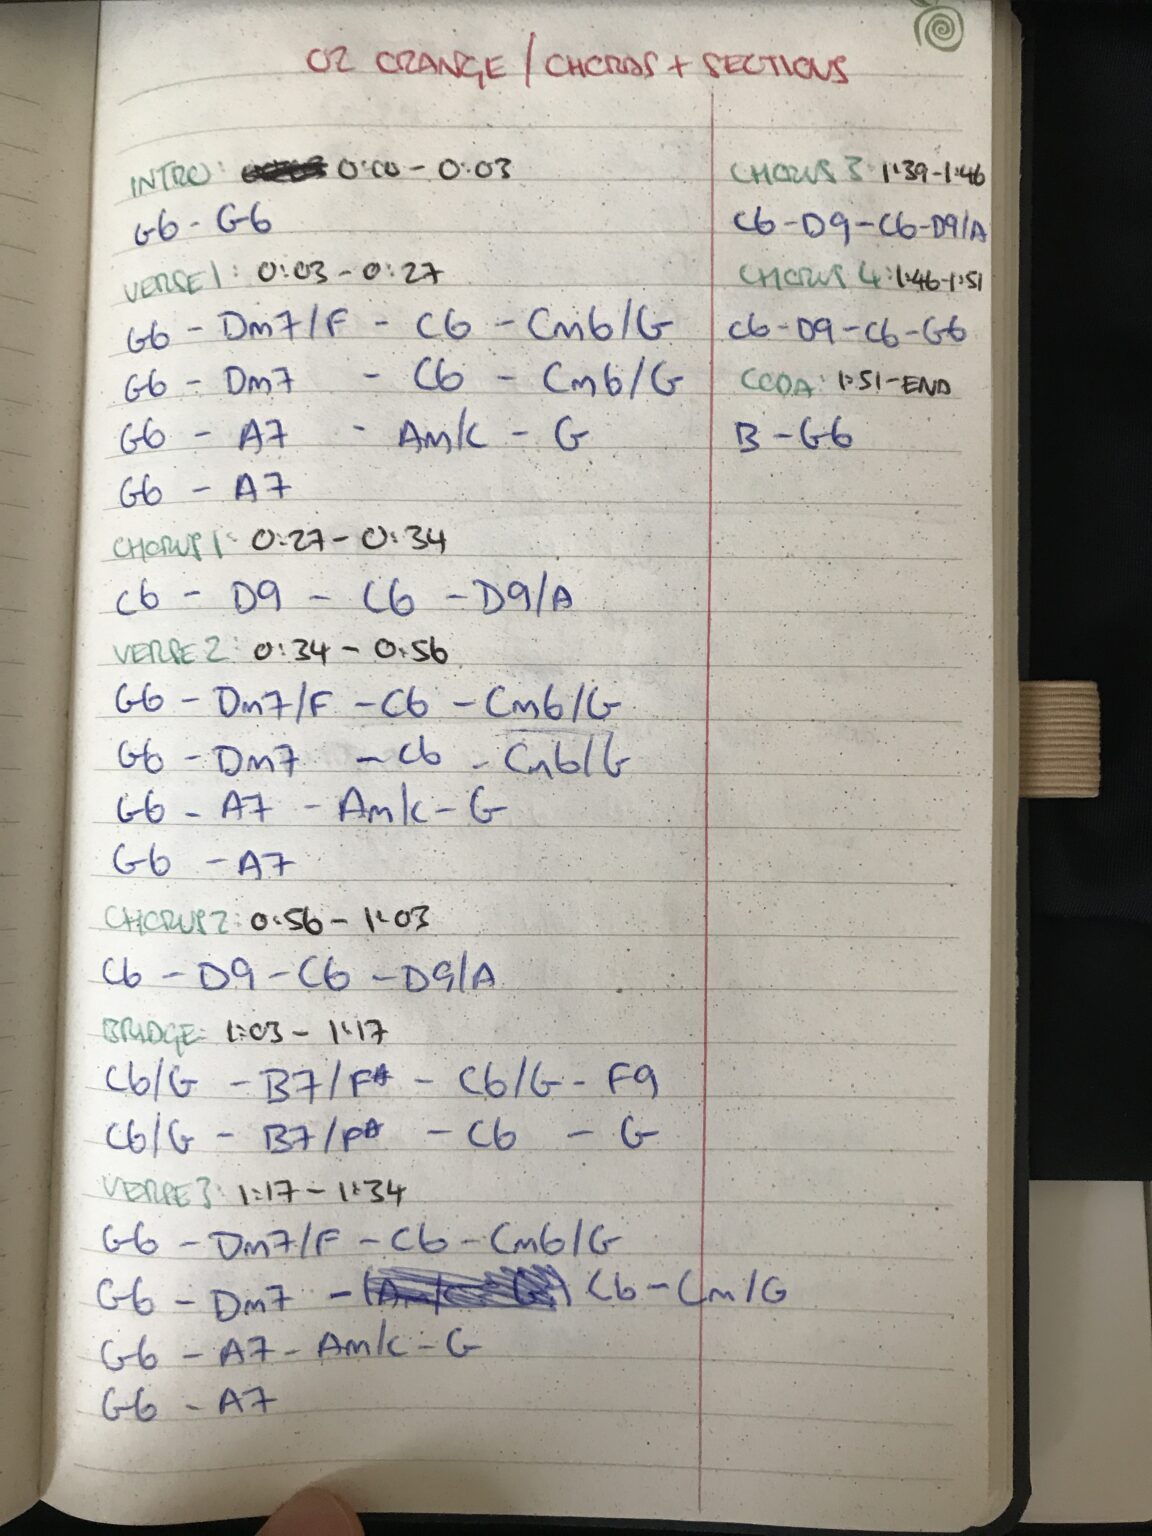 02 ORANGE / CHORDS + SECTIONS
INTRO: 0:00 - 0:03
G6 - G6
VERSE 1: 0:03 - 0:27
G6 - Dm7/F - C6 - Cm6/G
G6 - Dm7 - C6 - Cm6/G
G6 - A7 - Am/C - G
G6 - A7
CHORUS 1: 0:27 - 0:34
C6 - D9 - C6 - D9/A
VERSE 2: 0:34 - 0:56
G6 - Dm7/F - C6 - Cm6/G
G6 - Dm7 - C6 - Cm6/G
G6 - A7 - Am/C - G
G6 - A7
CHORUS 2: 0:56 - 1:03
C6 - D9 - C6 - D9/A
BRIDGE: 1:03 - 1:17
C6/G - B7/F# - C6/G - F9
C6/G - B7/F# - C6 - G
VERSE 3: 1:17 - 1:34
G6 - Dm7/F - C6 - Cm6/G
G6 - Dm7 - C6 - Cm/G
G6 - A7 - Am/C - G
G6 - A7
CHORUS 3: 1:39 - 1:46
C6 - D9 - C6 - D9/A
CHORUS 4: 1:46 - 1:51
C6 - D9 - C6 - G6
CODA: 1:51 - END
B - G6